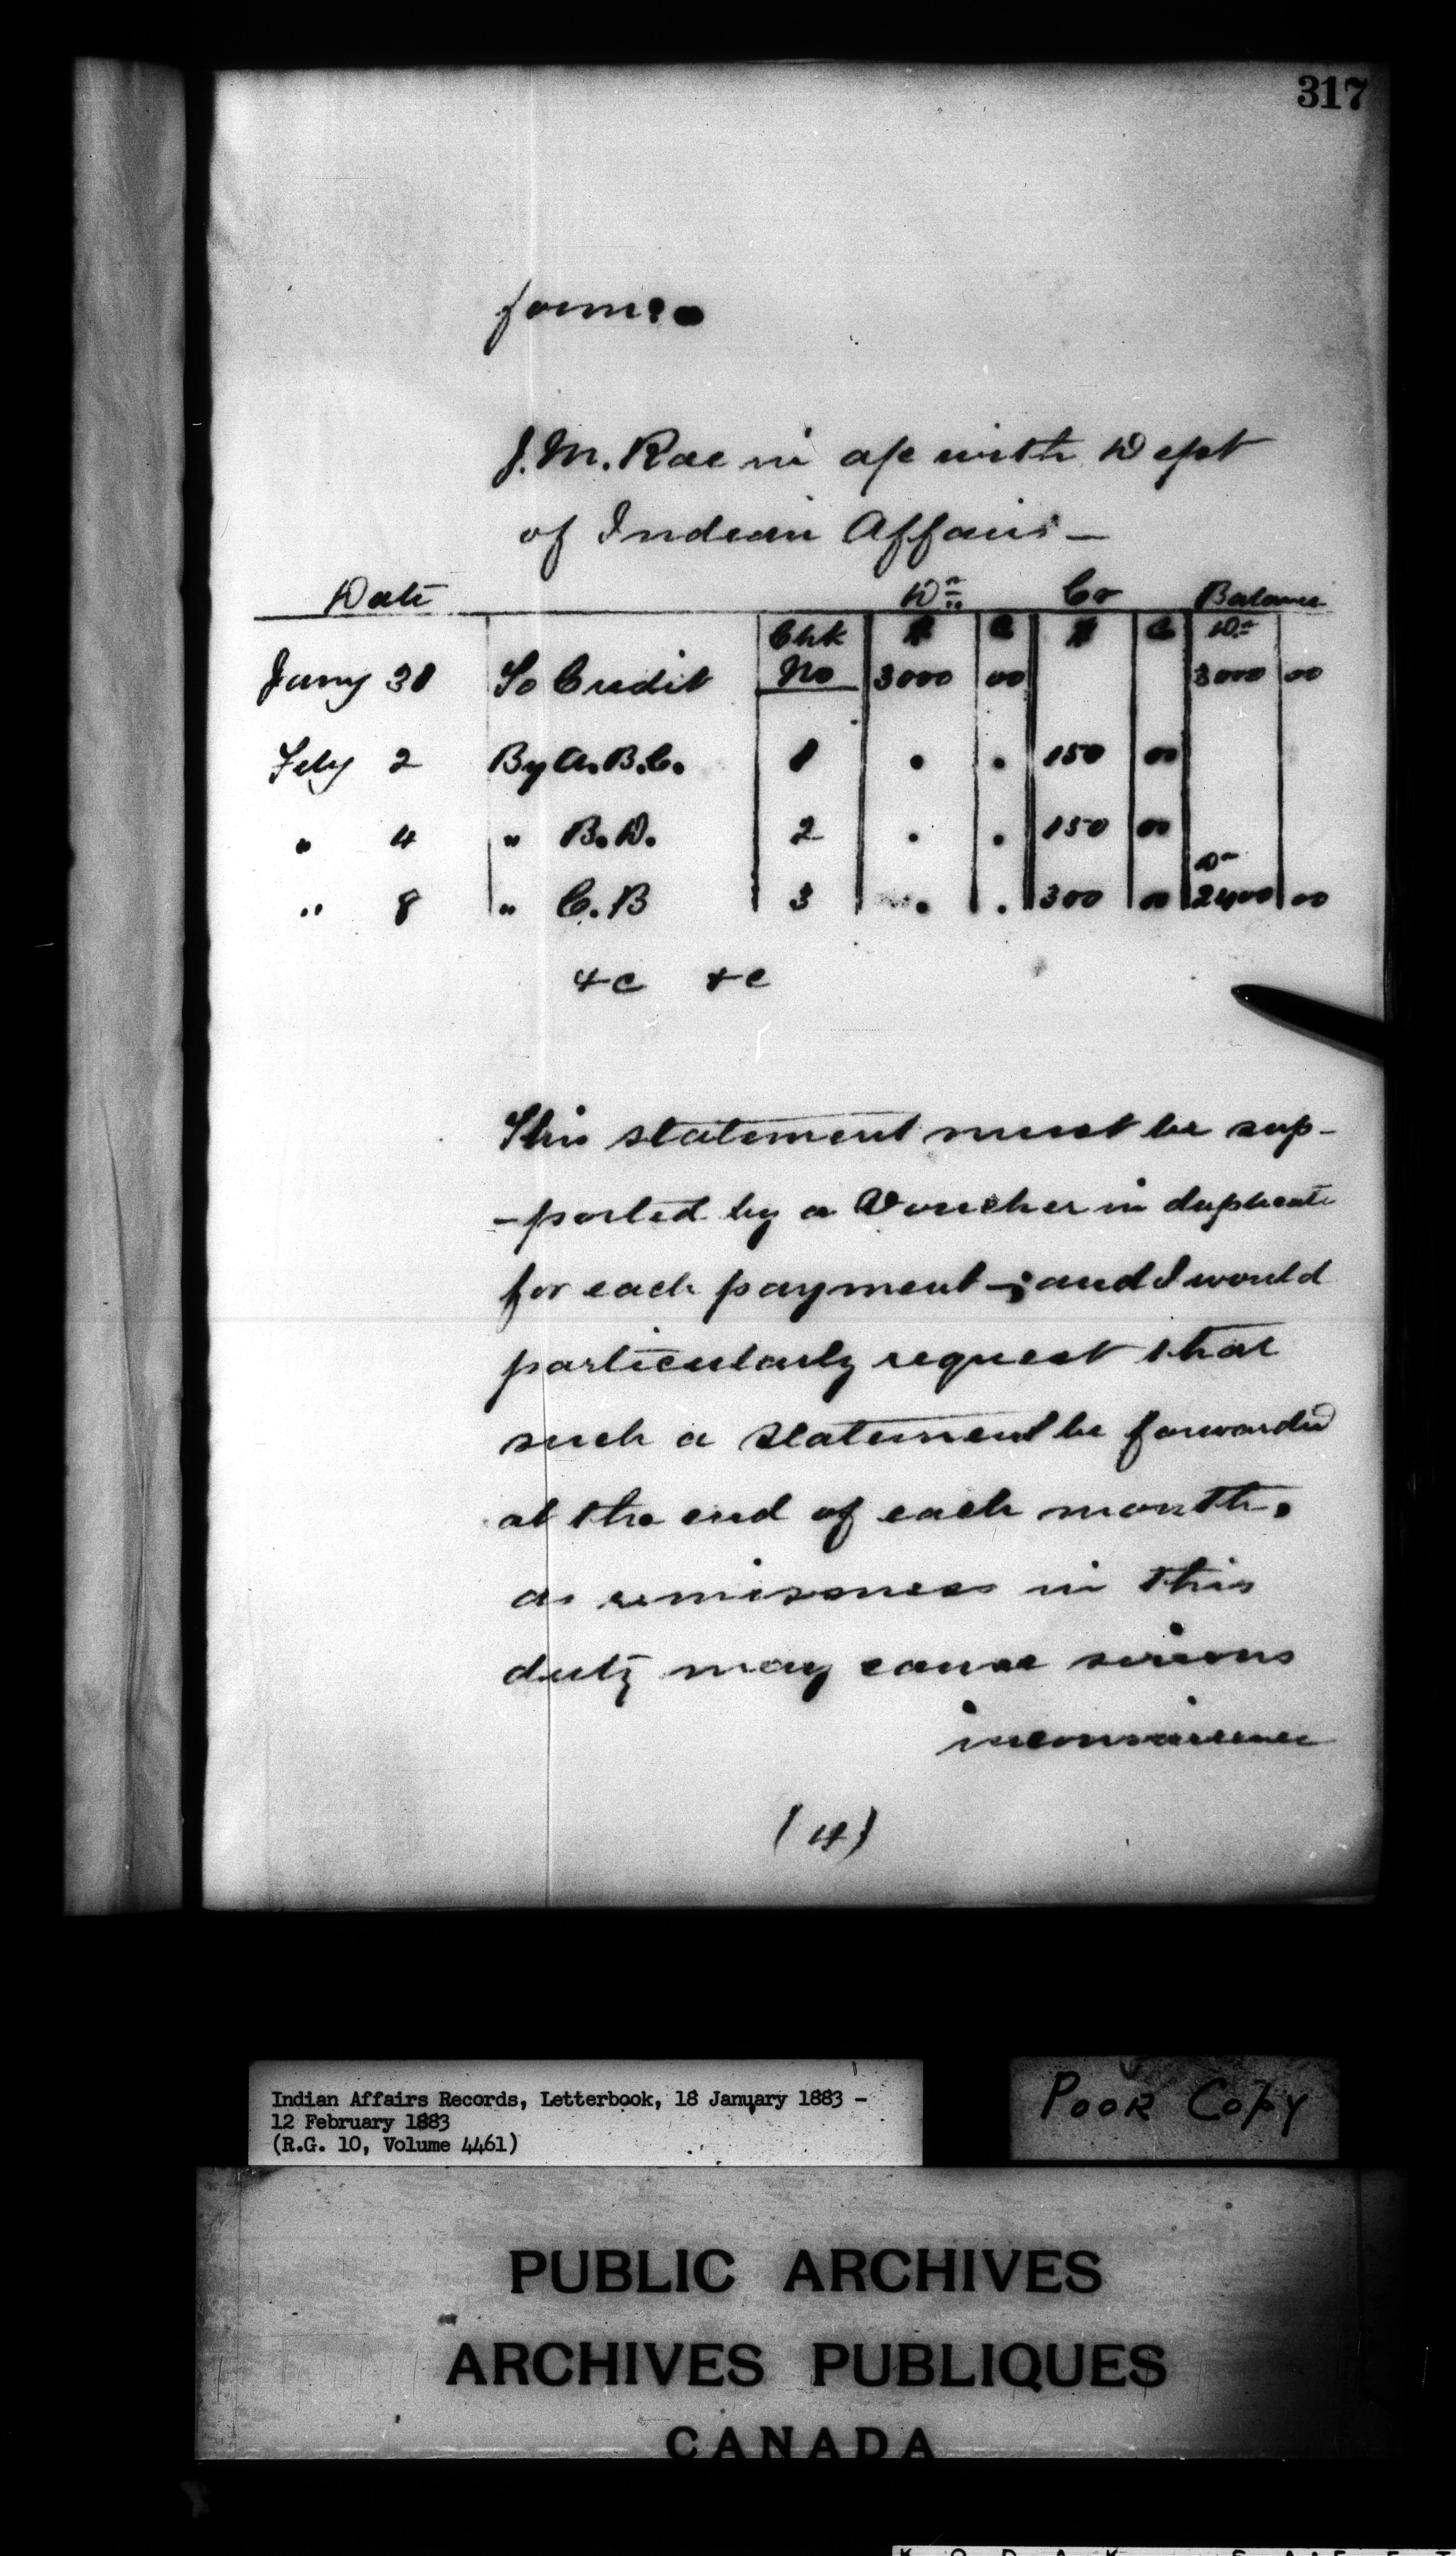 317
form:
J. M. Rae in a/c with Dept
of Indian Affairs —
Date Dr Cr Balance
Chk $ C $ C Dr
Jany 31 To Credit No 3000 00 3000 00
Feby 2 By A.B.C. 1 . . 150 00
" 4 " B.D. 2 . . 150 00
Dr
" 8 " C.B 3 . . 300 00 2400 00
&c &c
This statement must be sup-
-ported by a Voucher in duplicate
for each payment -; and I would
particularly request that
such a statement be forwarded
at the end of each month.
as remissness in this
duty may cause serious
inconvenience
(4)
Indian Affairs Records, Letterbook, 18 January 1883 -
12 February 1883
(R.G. 10, Volume 4461)
POOR COPY
PUBLIC ARCHIVES
ARCHIVES PUBLIQUES
CANADA